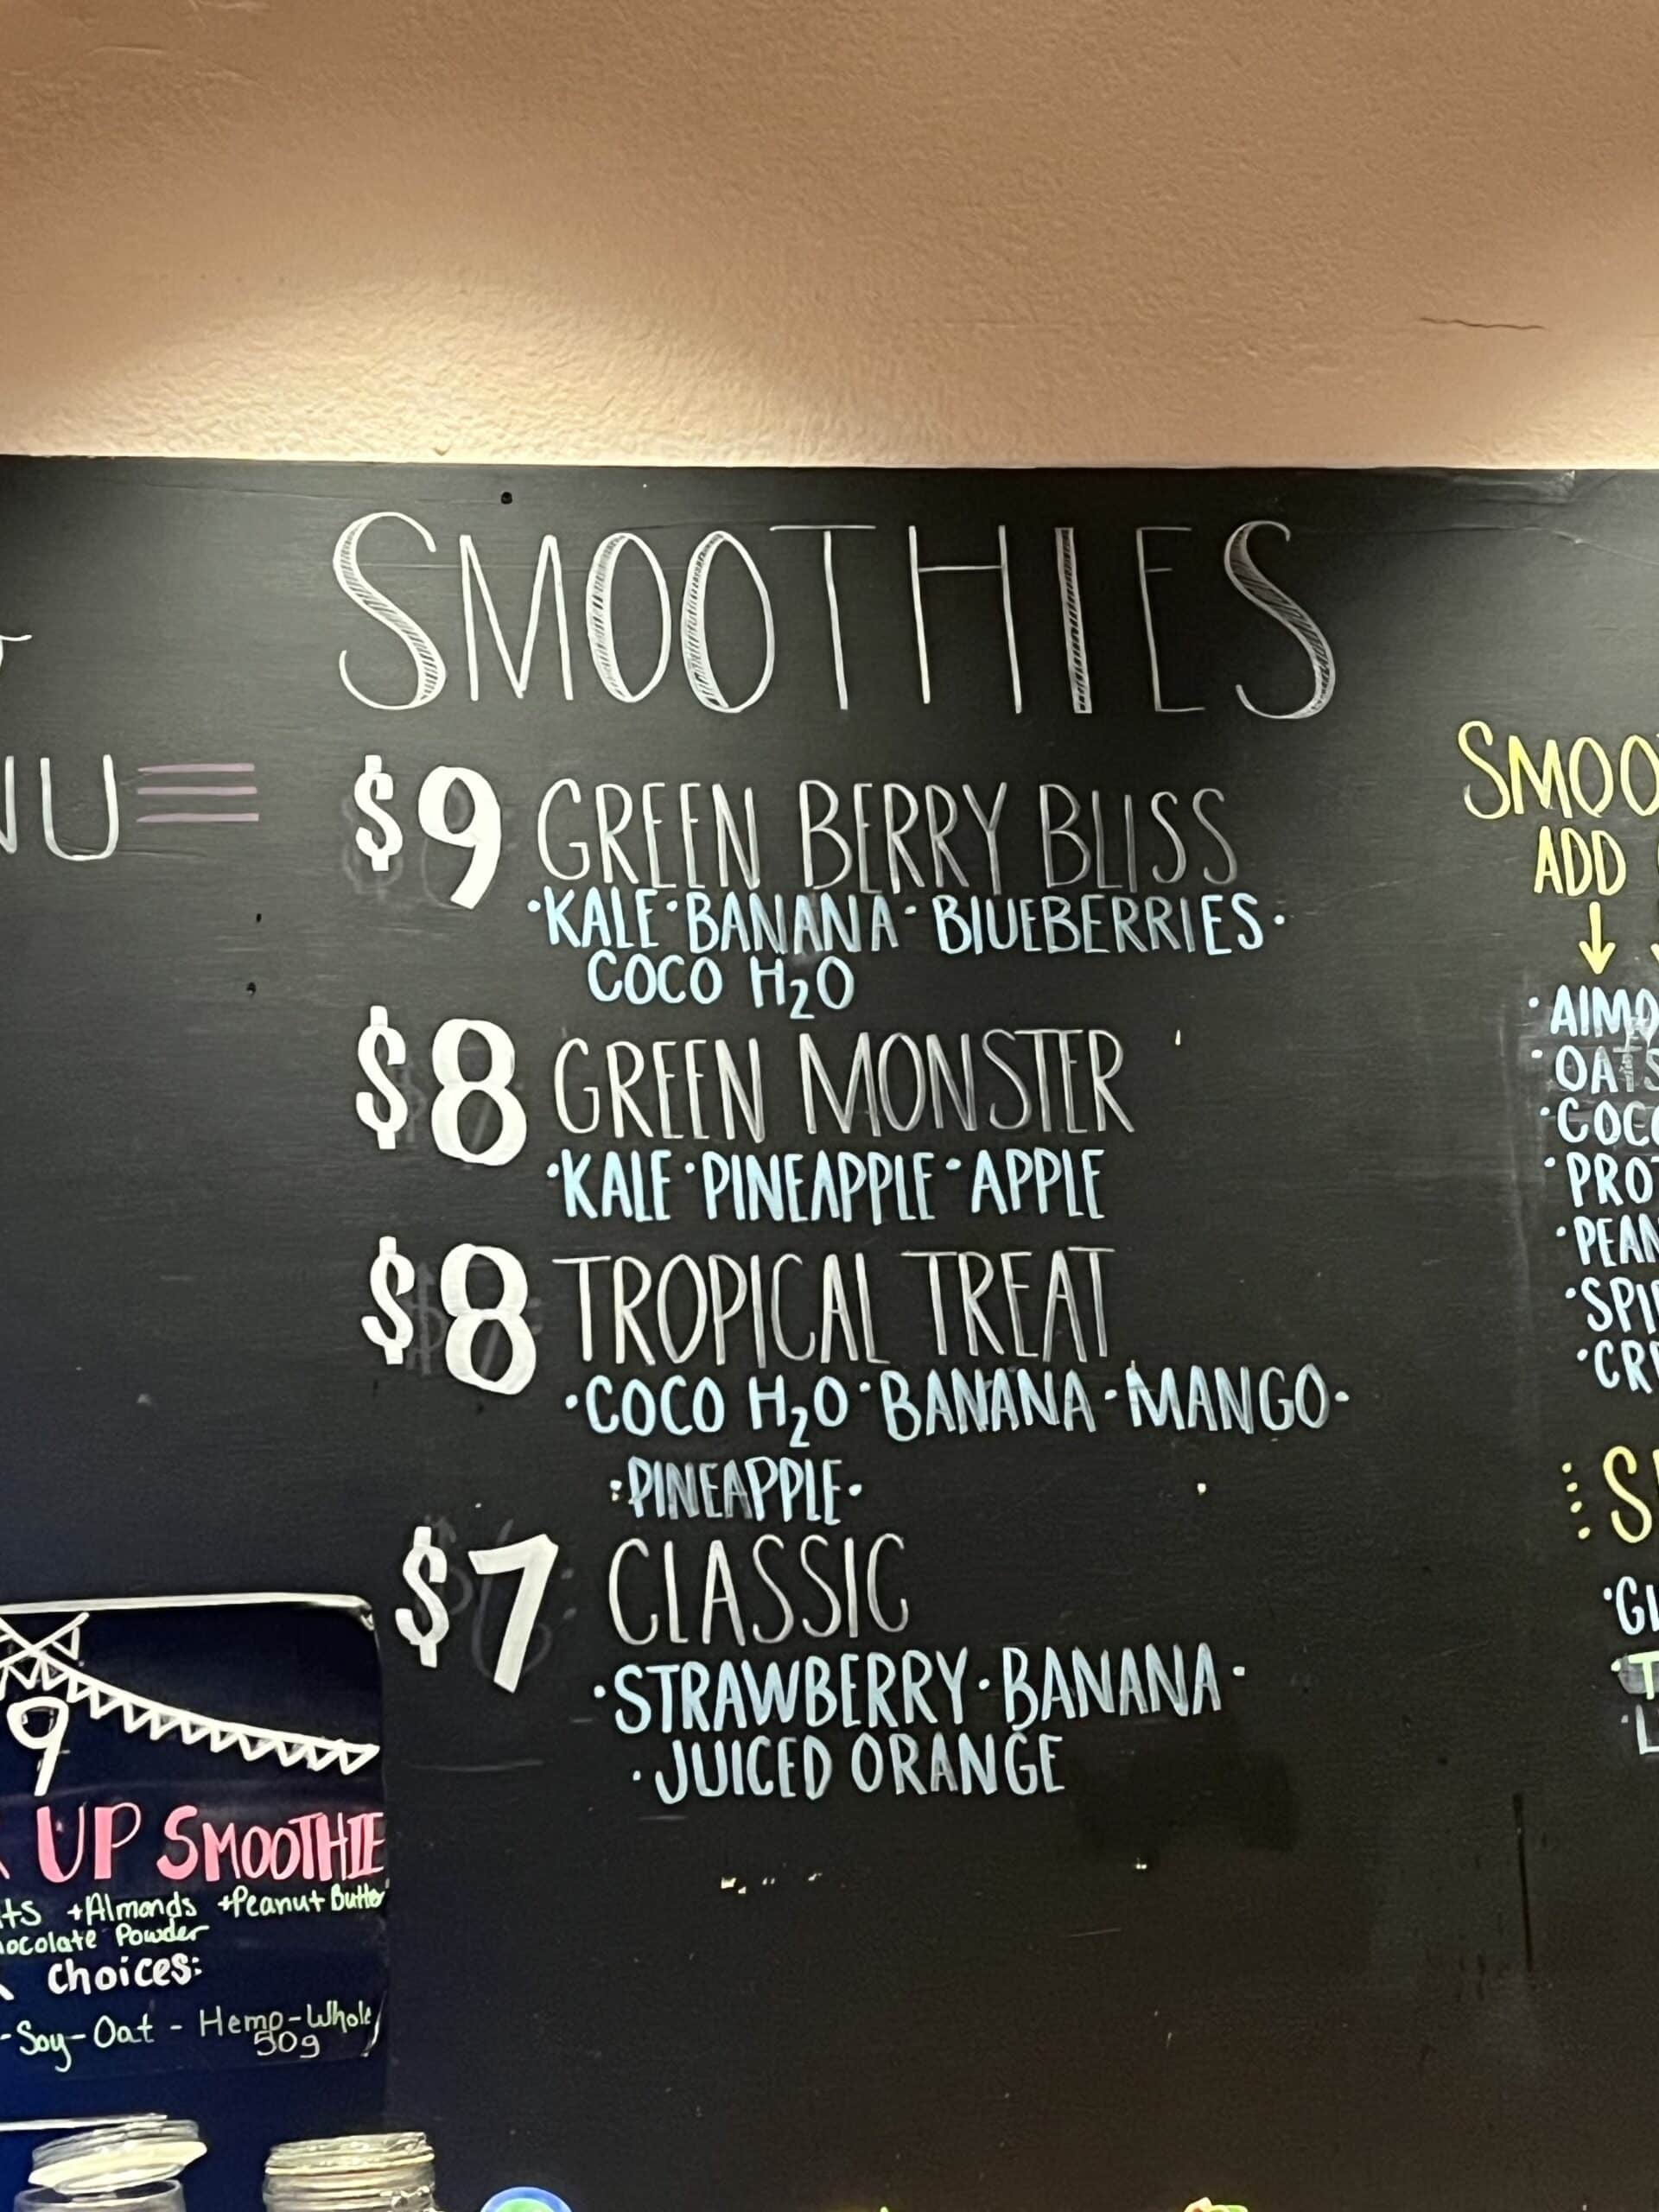 SMOOTHIES
$9 GREEN BERRY BLISS
·KALE·BANANA·BLUEBERRIES·
COCO H₂O
$8 GREEN MONSTER
·KALE·PINEAPPLE·APPLE
$8 TROPICAL TREAT
·COCO H₂O·BANANA·MANGO·
·PINEAPPLE·
$7 CLASSIC
·STRAWBERRY·BANANA·
·JUICED ORANGE
ADD
9
UP SMOOTHIE
+Almonds +Peanut Butter
Powder
choices:
-Soy-Oat - Hemp-Whole
50g